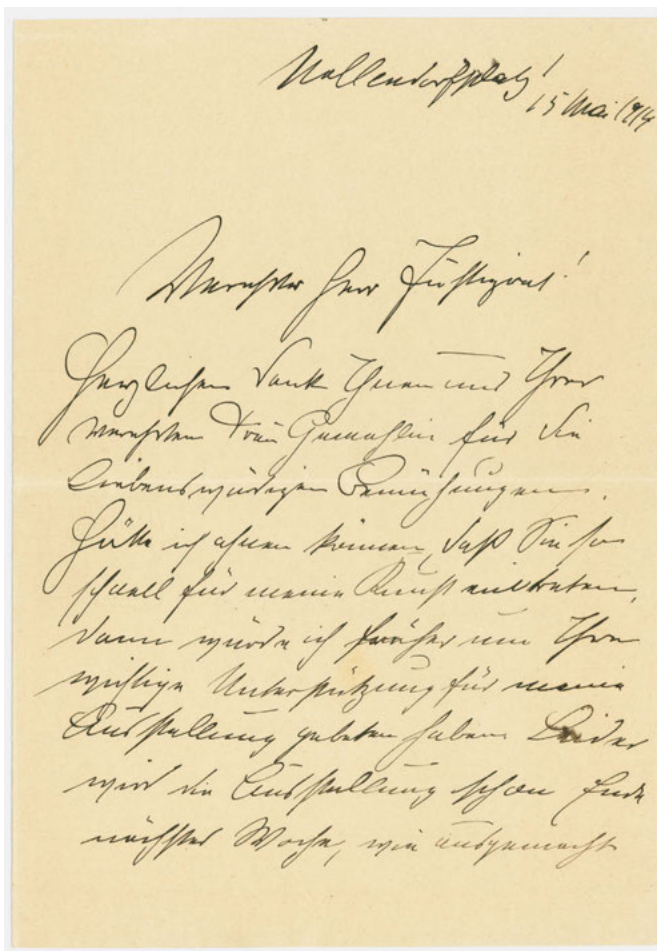 Nollendorfplatz!
15 Mai 1914
Verehrter Herr Justizrat!
Herzlichen Dank Ihnen und Ihrer
verehrten Frau Gemahlin für die
Liebenswürdigen Bemühungen.
Hätte ich ahnen können, daß Sie so
schnell für meine Kunst eintreten,
dann würde ich früher um Ihre
wichtige Unterstützung für meine
Ausstellung gebeten haben. Leider
wird die Ausstellung schon Ende
nächster Woche, wie ausgemacht